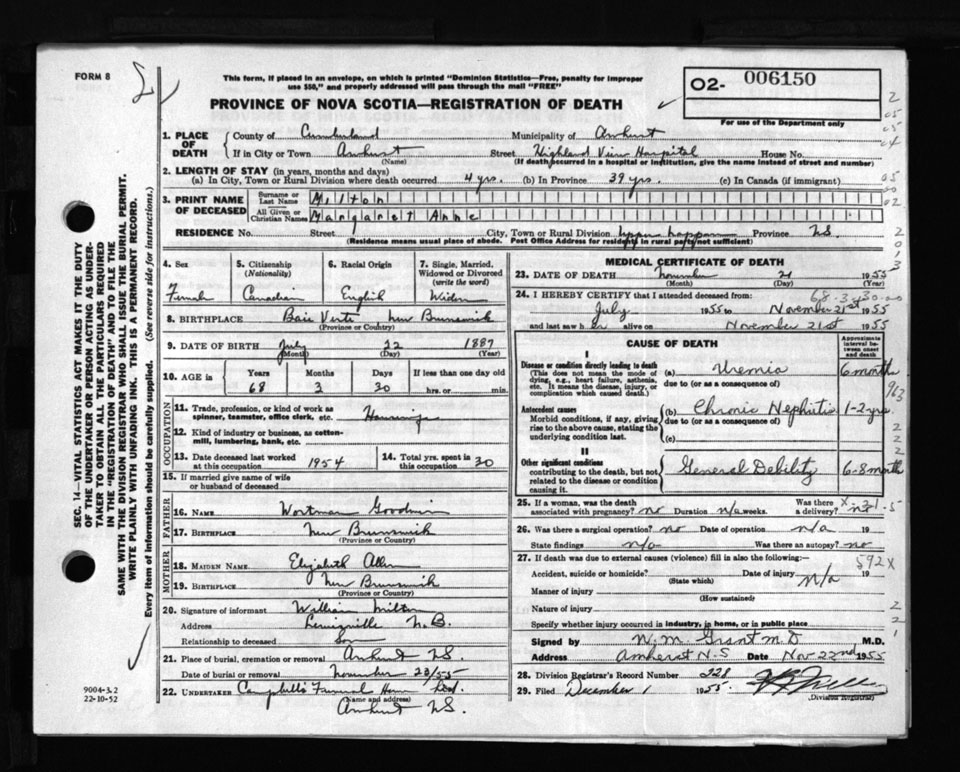 FORM 8
This form, if placed in an envelope, on which is printed "Dominion Statistics—Free, penalty for improper
use $50," and properly addressed will pass through the mail "FREE"
PROVINCE OF NOVA SCOTIA—REGISTRATION OF DEATH
O2- 006150
For use of the Department only
SEC. 14—VITAL STATISTICS ACT MAKES IT THE DUTY
OF THE UNDERTAKER OR PERSON ACTING AS UNDER-
TAKER TO OBTAIN ALL THE PARTICULARS REQUIRED
IN THE "REGISTRATION OF DEATH" AND TO FILE THE
SAME WITH THE DIVISION REGISTRAR WHO SHALL ISSUE THE BURIAL PERMIT.
WRITE PLAINLY WITH UNFADING INK. THIS IS A PERMANENT RECORD.
Every item of information should be carefully supplied. (See reverse side for instructions.)
1. PLACE OF DEATH County of Cumberland Municipality of Amherst
If in City or Town Amherst Street Highland View Hospital House No.
(Name) (If death occurred in a hospital or institution, give the name instead of street and number)
2. LENGTH OF STAY (in years, months and days)
(a) In City, Town or Rural Division where death occurred 4 yrs. (b) In Province 39 yrs. (c) In Canada (if immigrant)
3. PRINT NAME OF DECEASED Surname or Last Name Milton
All Given or Christian Names Margaret Anne
RESIDENCE No. Street City, Town or Rural Division Province N.S.
(Residence means usual place of abode. Post Office Address for residents in rural parts not sufficient)
4. Sex 5. Citizenship (Nationality) 6. Racial Origin 7. Single, Married, Widowed or Divorced (write the word)
Female Canadian English Widow
8. BIRTHPLACE Baie Verte New Brunswick
(Province or Country)
9. DATE OF BIRTH July 22 1887
(Month) (Day) (Year)
10. AGE in Years Months Days If less than one day old
68 3 30 hrs. or min.
OCCUPATION
11. Trade, profession, or kind of work as spinner, teamster, office clerk, etc.
12. Kind of industry or business, as cotton-mill, lumbering, bank, etc.
13. Date deceased last worked at this occupation 1954 14. Total yrs. spent in this occupation 30
15. If married give name of wife or husband of deceased
FATHER
16. NAME Wortman Goodwin
17. BIRTHPLACE New Brunswick
(Province or Country)
MOTHER
18. MAIDEN NAME Elizabeth Allen
19. BIRTHPLACE New Brunswick
(Province or Country)
20. Signature of informant William Milton
Address N.B.
Relationship to deceased Son
21. Place of burial, cremation or removal Amherst N.S.
Date of burial or removal November 23/55
22. UNDERTAKER Campbell's Funeral Home Ltd.
(Name and address)
Amherst N.S.
9004-3.2
22-10-52
MEDICAL CERTIFICATE OF DEATH
23. DATE OF DEATH November 21 1955
(Month) (Day) (Year)
24. I HEREBY CERTIFY that I attended deceased from:
July 1955 to November 21st 1955
and last saw her alive on November 21st 1955
CAUSE OF DEATH Approximate interval between onset and death
I
Disease or condition directly leading to death
(This does not mean the mode of dying, e.g., heart failure, asthenia, etc. It means the disease, injury, or complication which caused death.)
(a) Uremia 6 months
due to (or as a consequence of)
Antecedent causes
Morbid conditions, if any, giving rise to the above cause, stating the underlying condition last.
(b) Chronic Nephritis 1-2 yrs.
due to (or as a consequence of)
(c)
II
Other significant conditions
contributing to the death, but not related to the disease or condition causing it.
General Debility 6-8 months
25. If a woman, was the death associated with pregnancy? no Duration n/a weeks. Was there a delivery?
26. Was there a surgical operation? no Date of operation n/a 19
State findings n/a Was there an autopsy? no
27. If death was due to external causes (violence) fill in also the following:— 592X
Accident, suicide or homicide? Date of injury n/a 19
(State which)
Manner of injury
(How sustained)
Nature of injury
Specify whether injury occurred in industry, in home, or in public place
Signed by W. M. Grant M.D. M.D.
Address Amherst N.S Date Nov 22nd 1955
28. Division Registrar's Record Number 228
29. Filed December 1 1955
(Division Registrar)